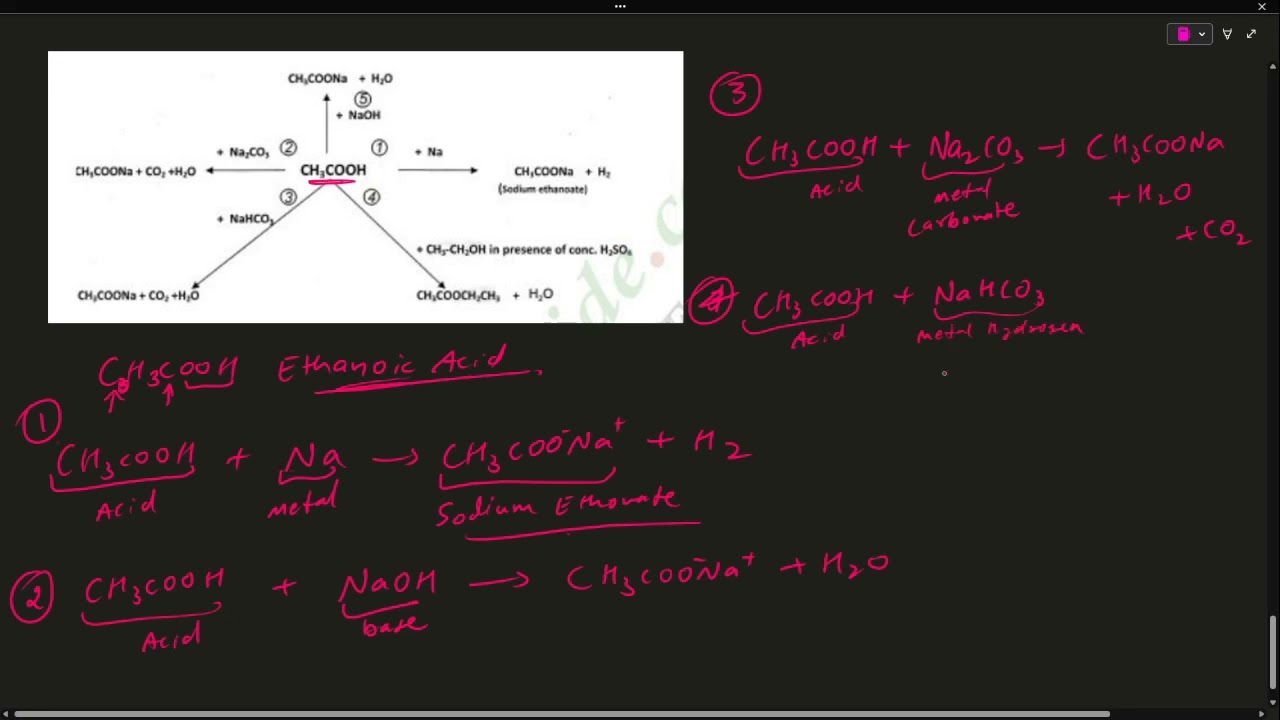 CH₃COONa + H₂O
⑤
+ NaOH
+ Na₂CO₃ ② ① + Na
CH₃COONa + CO₂ +H₂O CH₃COOH CH₃COONa + H₂
(Sodium ethanoate)
③ ④
+ NaHCO₃
+ CH₃-CH₂OH in presence of conc. H₂SO₄
CH₃COONa + CO₂ +H₂O CH₃COOCH₂CH₃ + H₂O
ide.c
CH₃COOH Ethanoic Acid
①
CH₃COOH + Na → CH₃COO⁻Na⁺ + H₂
Acid metal Sodium Ethonate
② CH₃COOH + NaOH → CH₃COO⁻Na⁺ + H₂O
Acid base
③
CH₃COOH + Na₂CO₃ → CH₃COONa
Acid metal + H₂O
Carbonate + CO₂
④ CH₃COOH + NaHCO₃
Acid metal Hydrogen